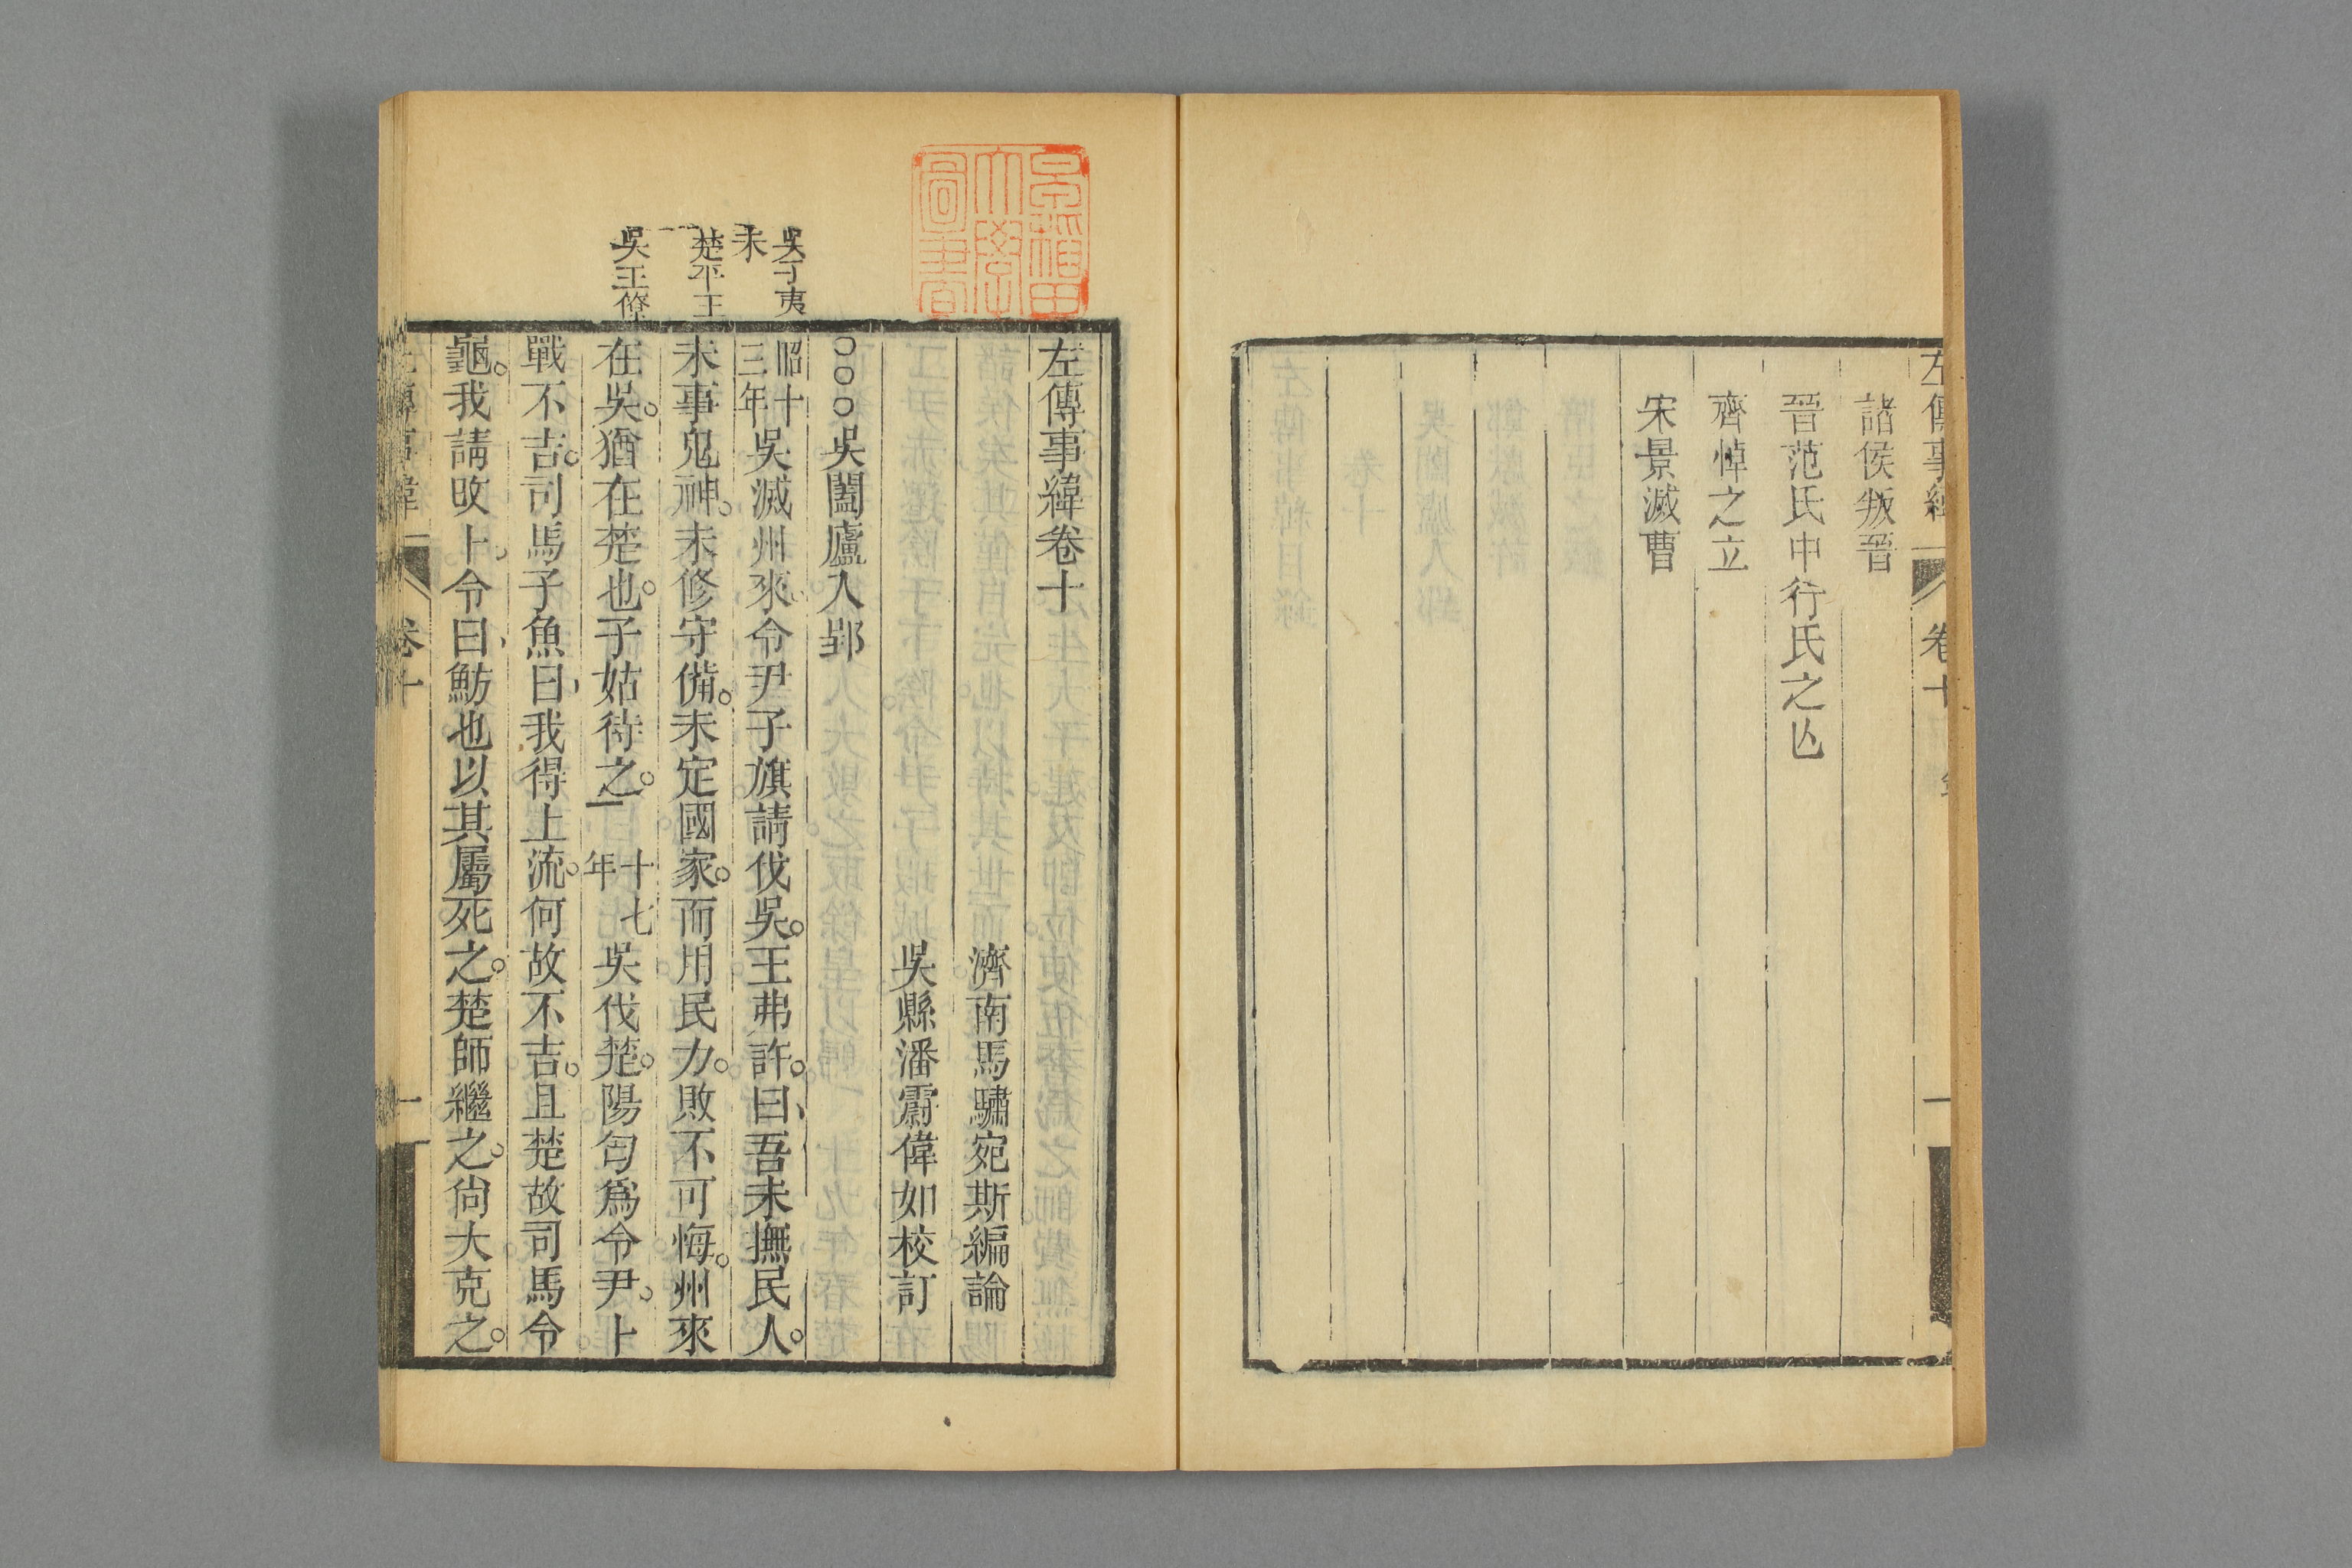 左傳事緯 卷十
諸侯叛晉
晉范氏中行氏之亾
齊悼之立
宋景滅曹
早稲田大學圖書
左傳事緯卷十
濟南馬驌宛斯編論
吳縣潘霨偉如校訂
○○○吳闔廬入郢
吳子夷
末
楚平王
吳王僚
昭十三年吳滅州來令尹子旗請伐吳。王弗許。曰、吾未撫民人。
未事鬼神。未修守備。未定國家。而用民力。敗不可悔。州來
在吳。猶在楚也。子姑待之。十七年吳伐楚。陽匄爲令尹、卜
戰不吉。司馬子魚曰、我得上流。何故不吉。且楚故司馬令
龜。我請改卜、令曰、魴也以其屬死之。楚師繼之、尙大克之。
卷十 一